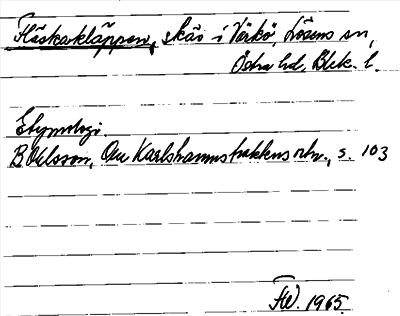 Fläskakläppen, skär i Verkö, Lösens sn,
Östra hd, Blek. l.
Etymologi
B Ohlsson, Om Karlshamnstraktens o
s. 103
FW. 1965.